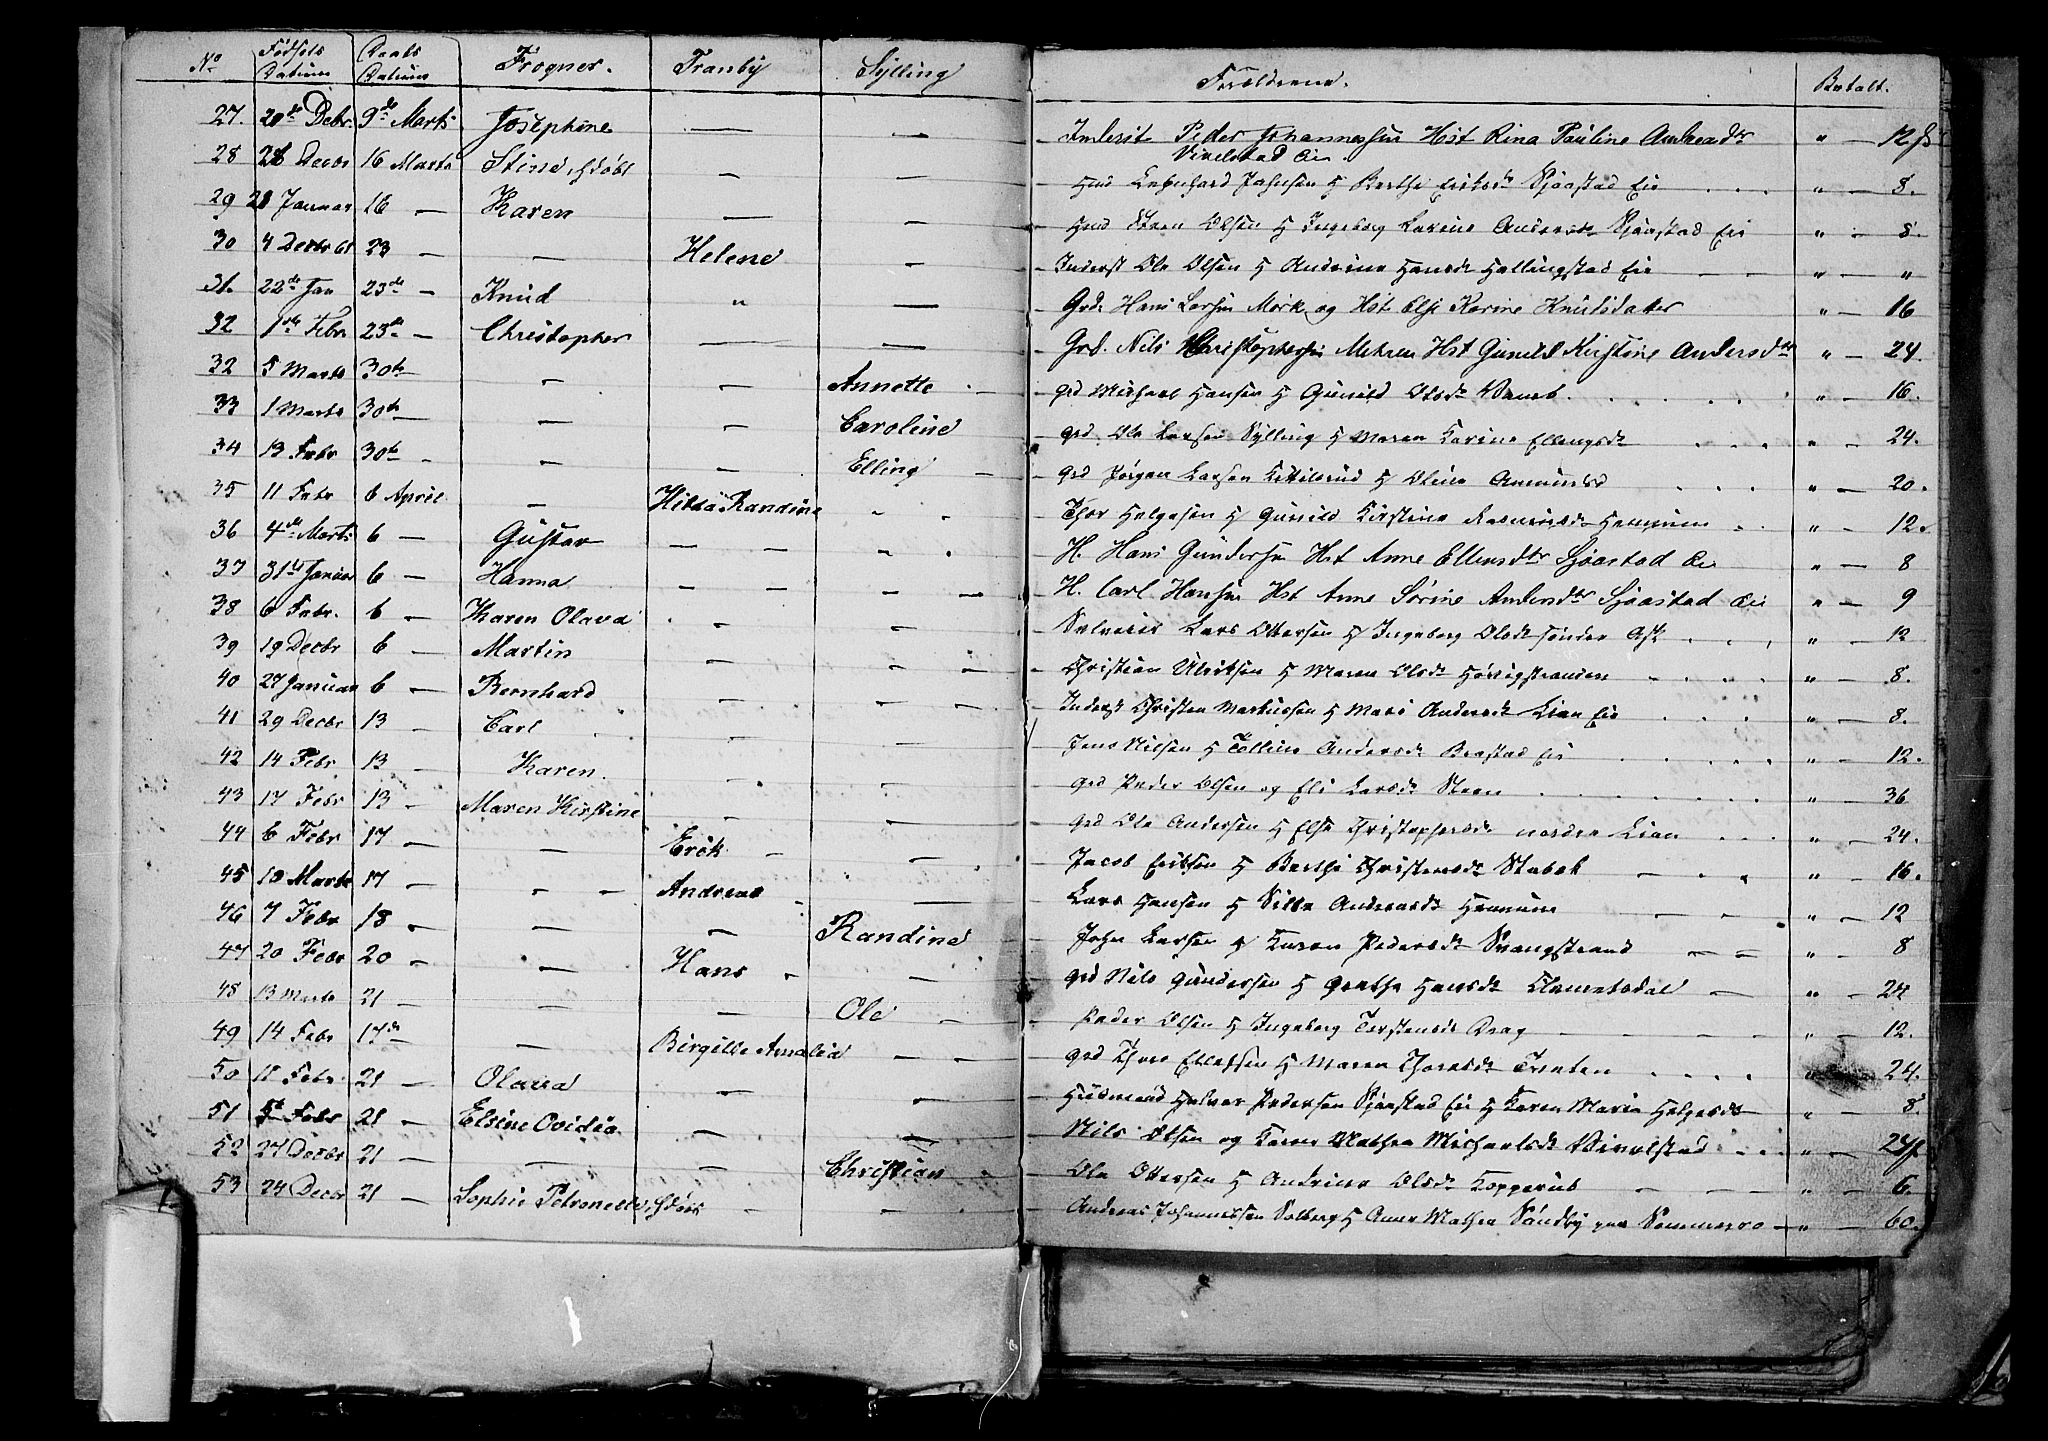 No Fødsels Datum Daabs Datum Frogner. Tranby Sylling Forældrene. Betalt.
27. 20de Debr. 9de Marts Josephine — — Inderst Peder Johannesen Hst Rina Pauline Andreadtr " — 12 ß
Vivelstad Eie
28 28 Decbr 16 Marts Stine, — — Hmd Johnsen H Berthe Eriksdt Sjaastad Eie " — 8.
29 28 Januar 16 — Karen — — Hmd Steen Olsen H Ingeborg Lovine Andersdt Sjaastad Eie " — 8.
30 4 Decbr 61 23 — — Helene — Inderst Ole Olsen H Andrine Hansdt Hallingstad Eie — — " — "
31. 22de Jan 23de — Knud " — Grd. Hans Larsen Mørk og Hst Else Karine Knudsdatter " — 16
32 1ste Febr 23de — Christopher — — Grd. Nils Christophersen Mehren Hst Gunild Kirstine Andersdtr " — 24
32 5 Marts 30te — — Annette — grd Michael Hansen H Gunild Olsdt " — 16.
33 1 Marts 30te — — — Caroline grd. Ole Larsen Sylling H Maren Karine Ellingsdt " — 24.
34 13 Febr 30te — — — Elling — grd Jørgen Larsen Kittilsrud H Oline Amundsd " — 20.
35 11 Febr 6 April — Hilda Randine Thor Helgesen H Gunild Kirstine Rasmusdt Hennum " — 12.
36 4de Marts 6 — Gustav — — H. Hans Gundersen Hst Anne Ellensdtr Sjaastad Eie " — 8
37 31te Januar 6 — Hanna — — H. Carl Hansen Hst Anne Sørine Andersdtr Sjaastad Eie " — 9
38 6 Febr. 6 — Karen Olava — Selveier Lars Ottersen H Ingeborg Olsdt søndre Ask " — 12
39 19 Decbr 6 — Martin — — Christian Ulriksen H Maren Olsdt " — 8.
40 27 Januar 6 — Bernhard — — Inderst Christen Markussen H Mari Andersdt Lian Eie " — 8.
41 29 Decbr 13 — Carl — — Jens Nilsen H Andersdt Eie " — 12.
42 14 Febr 13 — Karen. — grd Peder Olsen og Eli Larsdt Steen " — 36
43 17 Febr 13 — Maren Kirstine — — grd Ole Andersen H Else Christophersdt nordre Lian " — 24.
44 6 Febr 17 — — Erik — Jacob Eriksen H Berthe Christensdt Stabek " — 16.
45 10 Marts 17 — — Andreas — Lars Hansen H Andreasdt Hennum " — 12
46 7 Febr 18 — — — Randine John Larsen H Karen Pedersdt Svangstrand — — " — 8
47 20 Febr 20 — — Hans — grd Nils Gundersen H Grethe Hansdt Clemetsdal — " — 24
48 13 Marts 21 — — — Ole — Peder Olsen H Ingeborg Torstensdt Drag — " — 12.
49 14 Febr 17de — — Birgitte Amalia — grd Thore Ellefsen H Maren Thoresdt " — 24.
50 11 Febr. 21 — Olava — — Huusmand Halvor Pedersen Sjaastad Eie H Karen Maria Helgesdt " — 8
51 5te Febr 21 — Elsine Ovidia — — Nils Olsen og Karen Mathea Michaelsdt Vivelstad " — 24 ß
52 27 Decbr 21 — — — Christian Ole Ottersen H Andrine Olsdt Kopperud — — " — 6.
53 24 Decbr 21 — Sophie Petronelle — Andreas Johannessen Solberg H Anne Mathea Sandby Sommerro — " — 60.